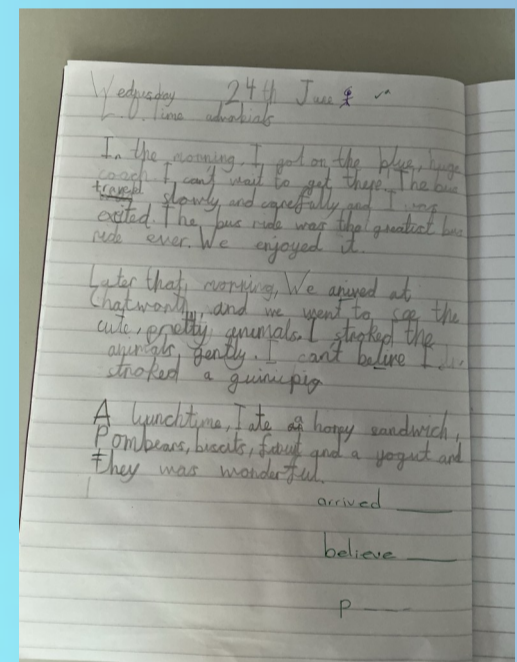 Wednesday 24th June
L.O. Time adverbials
In the morning, I got on the blue, huge
coach. I can't wait to get there. The bus
travel slowly and carefully and I was
excited. The bus ride was the greatist bus
ride ever. We enjoyed it.
Later that, morning, We arived at
Chatworth, and we went to see the
cute, pretty animals. I stroked the
animals, gently. I can't belive I
stroked a guinipig
A lunchtime, I ate a hamy sandwich,
Pombears, biscuits, and a yogut and
they was wonderful.
arrived
believe
P